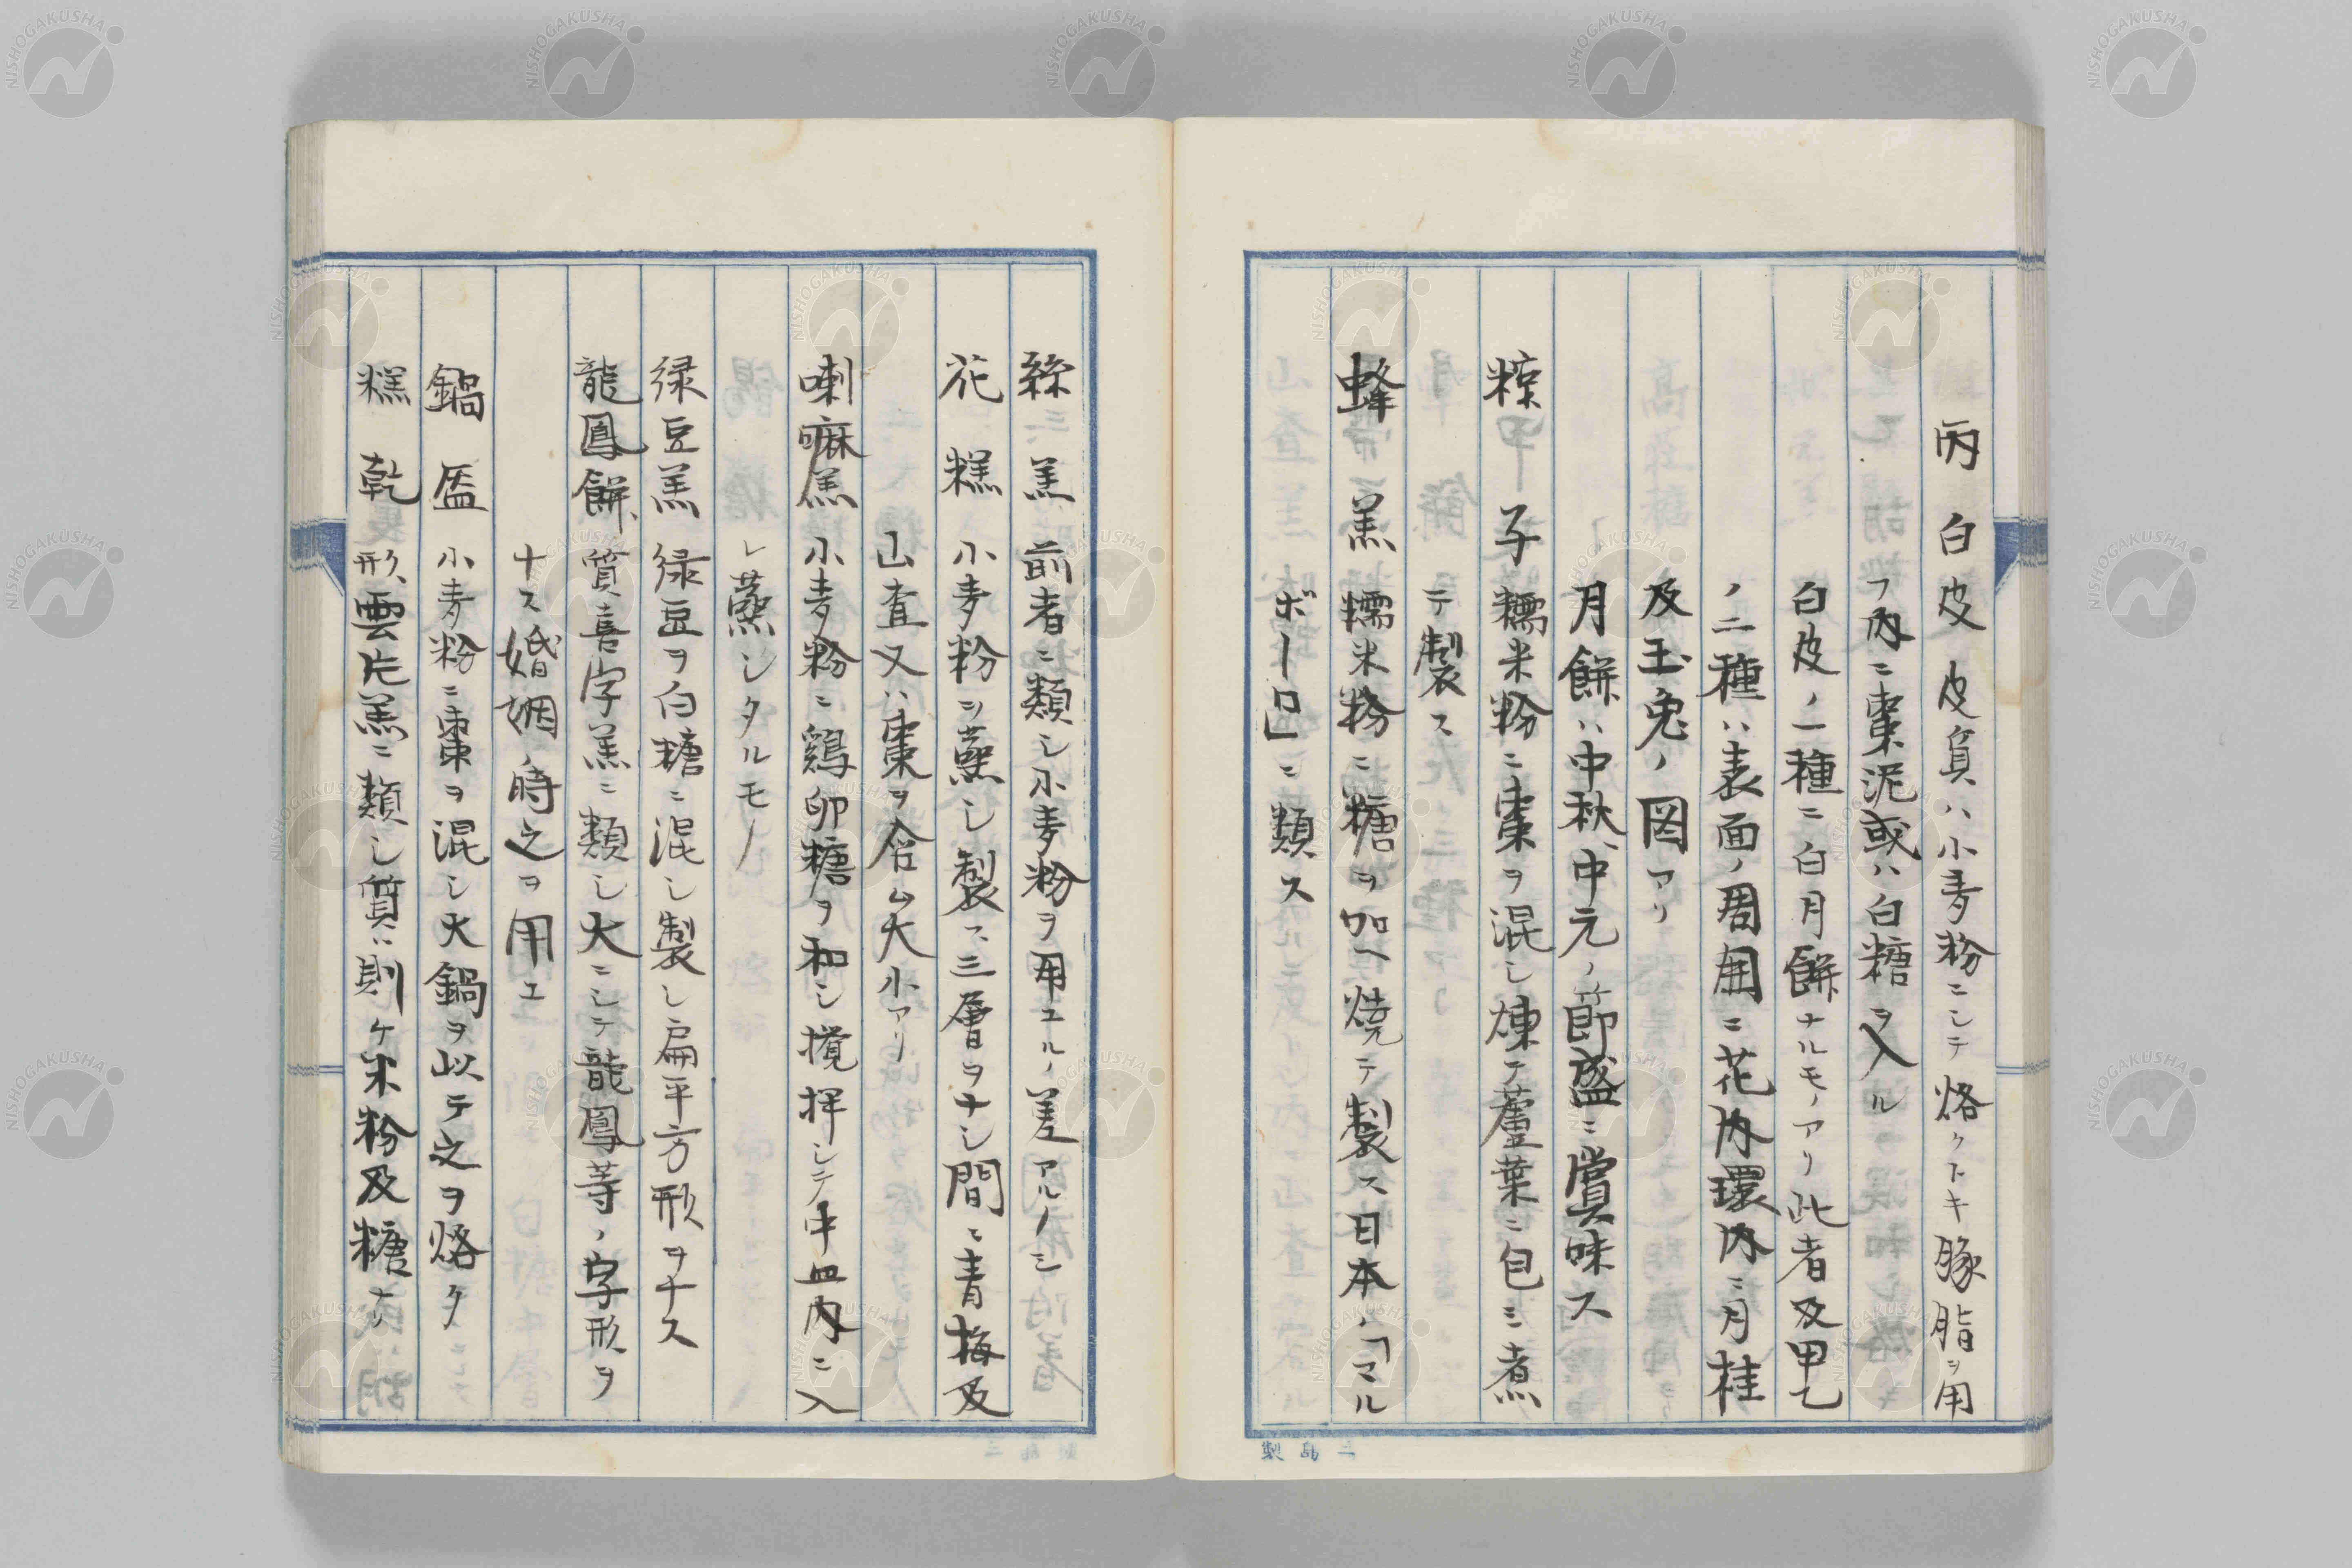 丙 白皮 皮負ハ小麦粉ニシテ烙クトキ豚脂ヲ用
フ内ニ棗泥或ハ白糖ヲ入ル
白皮ノ一種ニ白月餅ナルモノアリ此者及甲乙
ノ二種ハ表面ノ周囲ニ花内環内ニ月桂
及玉兔ノ図アリ
月餅ハ中秋、中元ノ節盛ニ賞味ス
粽子 糯米粉ニ棗ヲ混シ煉テ蘆葉ニ包ミ煮
テ製ス
蜂羔 糯米粉ニ糖ヲ加ヘ焼テ製ス日本ノ「マル
ボーロ」ニ類ス
三島製
絲羔 前者ニ類シ小麦粉ヲ用ユルノ差アルノミ
花糕 小麦粉ヲ蒸シ製ス三層ヲナシ間ニ青梅及
山査又ハ棗ヲ含ム大小アリ
喇嘛羔 小麦粉ニ鶏卵糖ヲ和シ攪拌シテ中皿内ニ入
レ蒸シタルモノ
緑豆羔 緑豆ヲ白糖ニ混シ製シ扁平方形ヲナス
龍鳳餅 質喜字羔ニ類シ大ニシテ龍鳳等ノ字形ヲ
ナス婚姻ノ時之ヲ用ユ
鍋盔 小麦粉ニ棗ヲ混シ大鍋ヲ以テ之ヲ烙ク
糕乾 形雲片羔ニ類シ質ハ則ケ米粉及糖ナリ
NISHOGAKUSHA